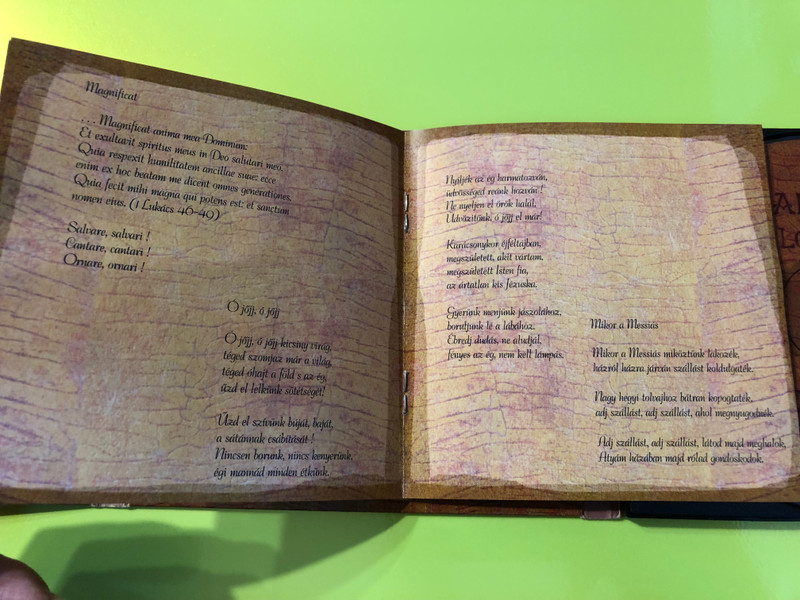 Magnificat
. . . Magnificat anima mea Dominum:
Et exultavit spiritus meus in Deo salutari meo.
Quia respexit humilitatem ancillae suae: ecce
enim ex hoc beatam me dicent omnes generationes.
Quia fecit mihi magna qui potens est: et sanctum
nomen eius. (1 Lukács 46-49)
Salvare, salvari !
Cantare, cantari !
Ornare, ornari !
Ó jöjj, ó jöjj
Ó jöjj, ó jöjj kicsiny virág,
téged szomjaz már a világ,
téged óhajt a föld s az ég,
űzd el lelkünk sötétségét!
Űzd el szívünk búját, baját,
a sátánnak csábítását !
Nincsen borunk, nincs kenyerünk,
égi mannád minden étkünk.
Nyíljék az ég harmatozván,
üdvösséged reánk hozván !
Ne nyeljen el örök halál,
Üdvözítőnk, ó jöjj el már!
Karácsonykor éjféltájban,
megszületett, akit vártam,
megszületett Isten fia,
az ártatlan kis Jézuska.
Gyerünk menjünk jászolához,
boruljunk le a lábához.
Ébredj dudás, ne aludjál,
fényes az ég, nem kell lámpás.
Mikor a Messiás
Mikor a Messiás miköztünk lakozék,
házról házra járván szállást koldulgaték.
Nagy hegyi tolvajhoz bátran kopogtaték,
adj szállást, adj szállást, ahol megnyugodnék.
Adj szállást, adj szállást, látod majd meghalok,
Atyám házában majd rólad gondoskodok.